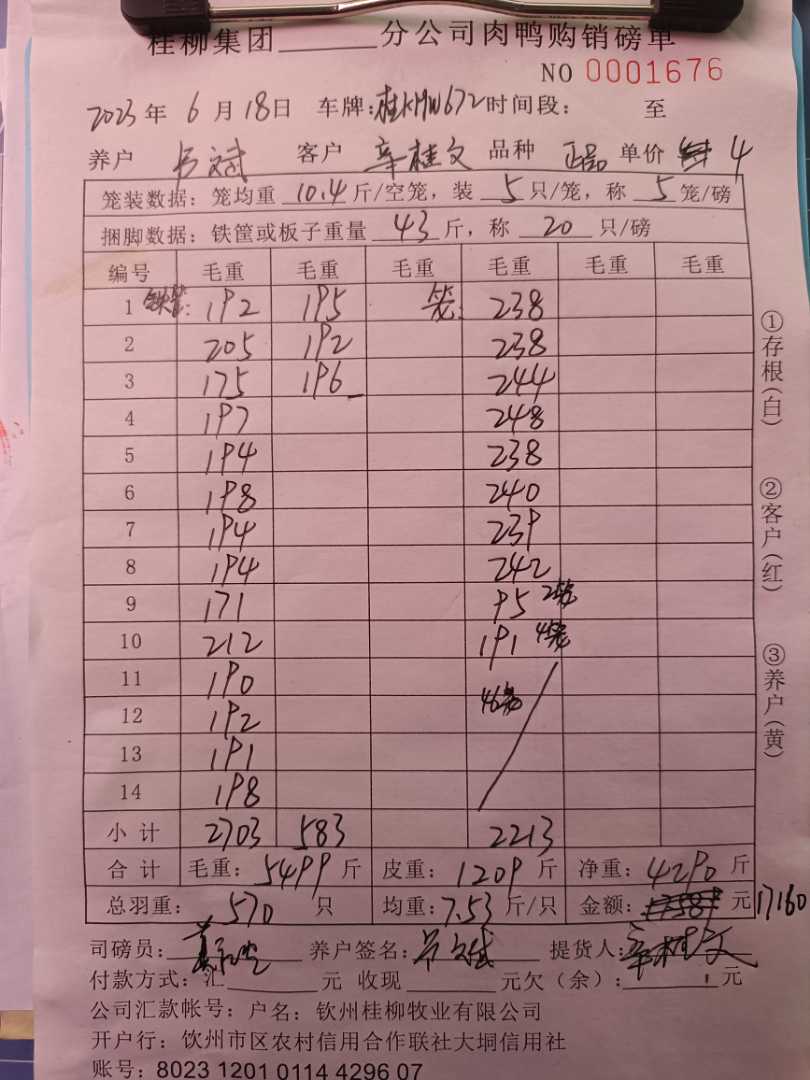 桂柳集团______分公司肉鸭购销磅单
NO 0001676
2023年 6月18日 车牌:桂KMW672时间段: 至
养户 吕文斌 客户 辛桂文 品种 正品 单价 4
笼装数据:笼均重 10.4 斤/空笼,装 5 只/笼,称 5 笼/磅
捆脚数据:铁筐或板子重量 43 斤,称 20 只/磅
编号 毛重 毛重 毛重 毛重 毛重 毛重
1 铁笼: 192 195 笼: 238
2 205 192 238
3 175 196 244
4 197 248
5 194 238
6 198 240
7 194 239
8 194 242
9 171 95 2笼
10 212 191 4笼
11 190
12 192 46笼
13 191
14 198
小计 2703 583 2213
合计 毛重: 5499 斤 皮重: 1209 斤 净重: 4290 斤
总羽重: 570 只 均重: 7.53 斤/只 金额: 元 17160
司磅员: 养户签名: 吕文斌 提货人: 辛桂文
付款方式:汇______元 收现______元欠(余):______元
公司汇款帐号:户名:钦州桂柳牧业有限公司
开户行:钦州市区农村信用合作联社大垌信用社
账号:8023 1201 0114 4296 07
①存根(白)
②客户(红)
③养户(黄)